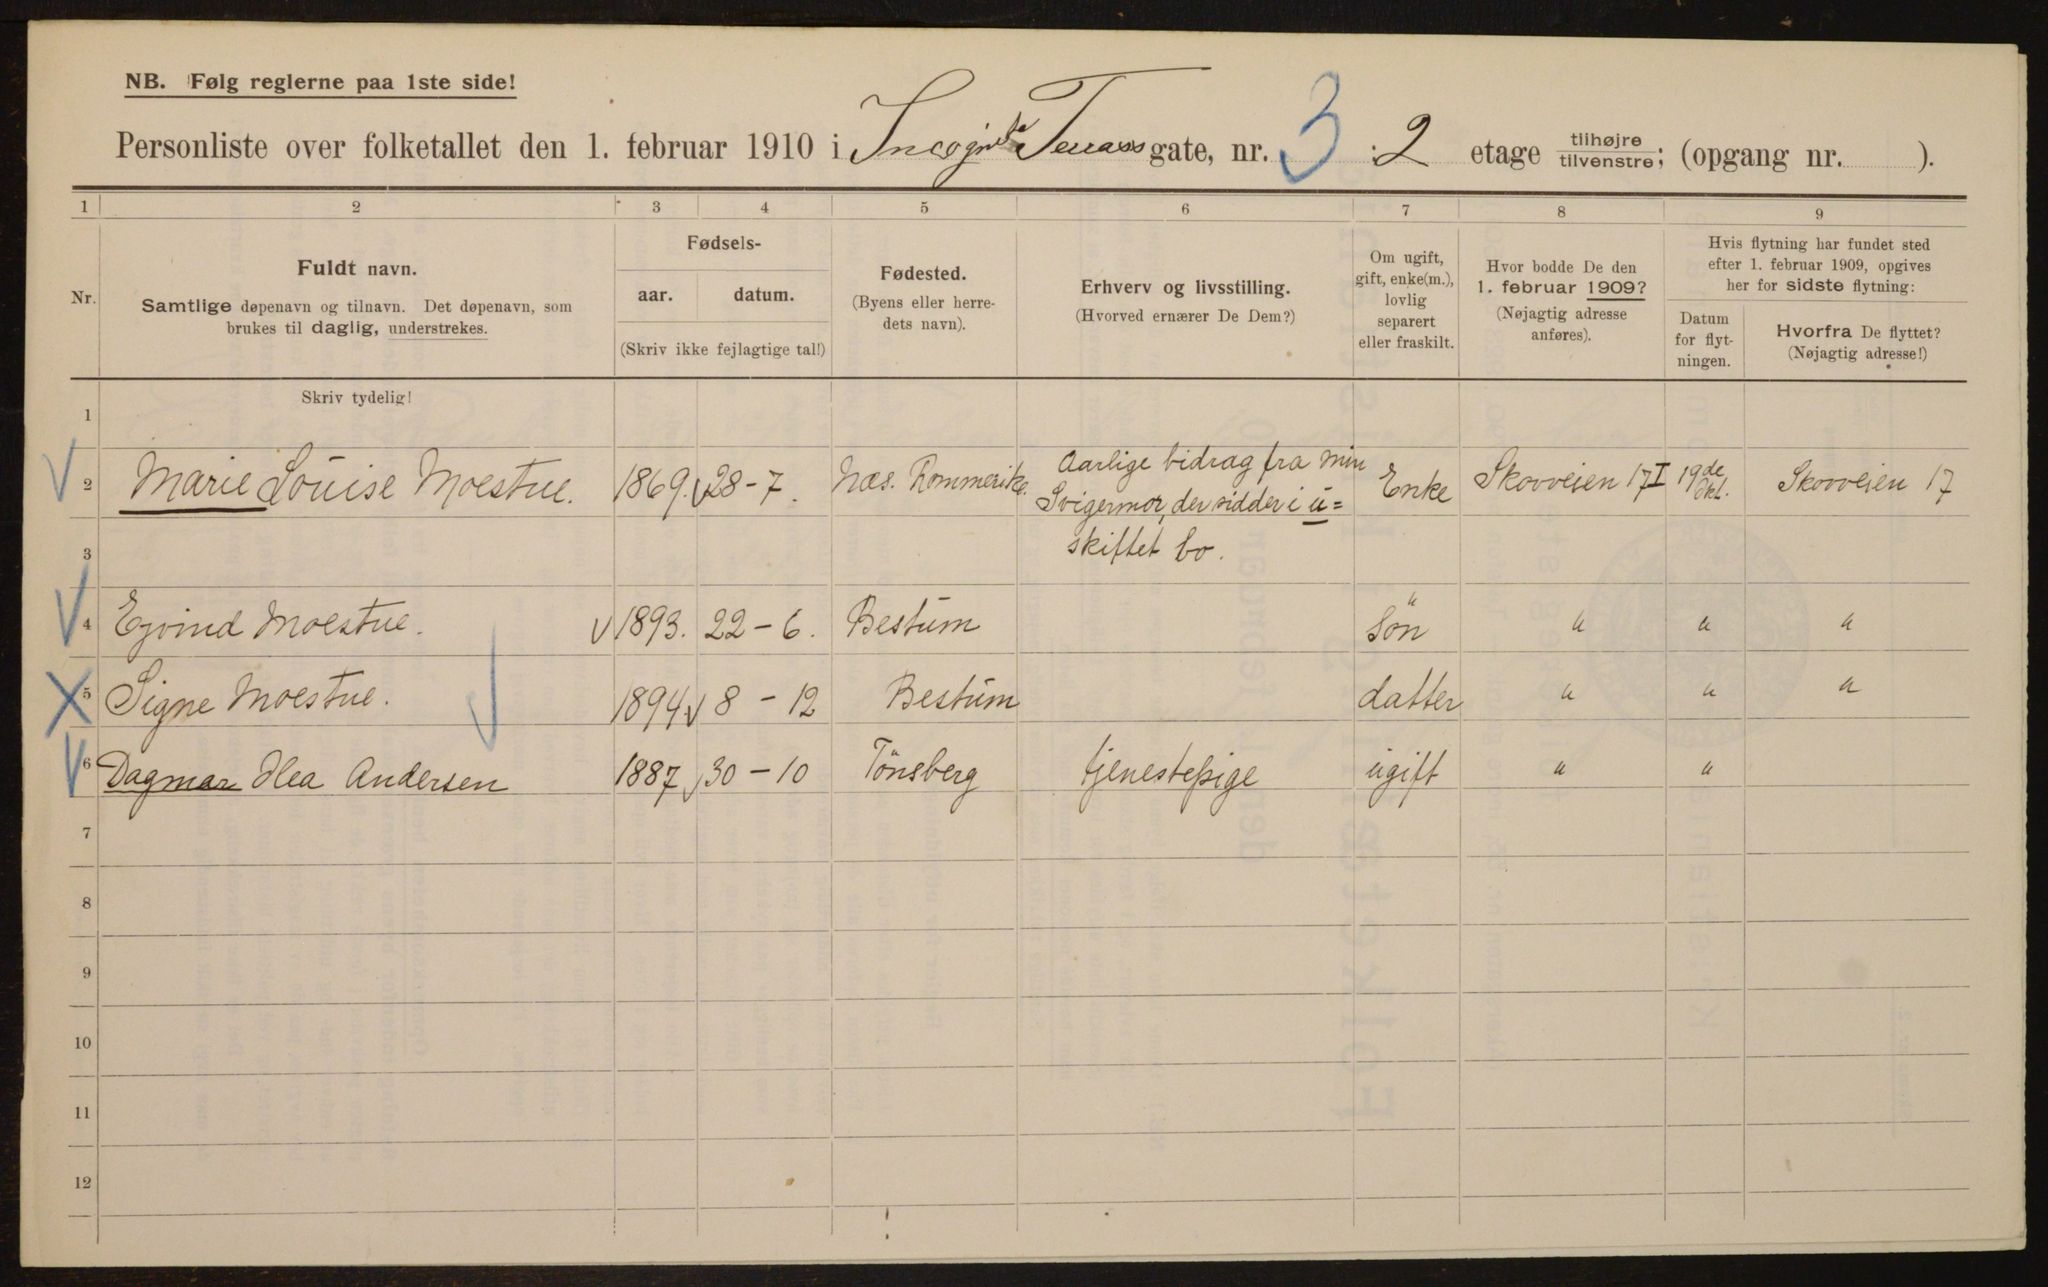 NB. Følg reglerne paa 1ste side!
Personliste over folketallet den 1. februar 1910 i Incognito Terrass gate, nr. 3 2 etage tilhøjre tilvenstre; (opgang nr. ).
1 2 3 4 5 6 7 8 9
Nr.
Fuldt navn.
Samtlige døpenavn og tilnavn. Det døpenavn, som
brukes til daglig, understrekes.
Fødsels-
aar. datum.
(Skriv ikke fejlagtige tal!)
Fødested.
(Byens eller herre-
dets navn).
Erhverv og livsstilling.
(Hvorved ernærer De Dem?)
Om ugift,
gift, enke(m.),
lovlig
separert
eller fraskilt.
Hvor bodde De den
1. februar 1909?
(Nøjagtig adresse
anføres).
Hvis flytning har fundet sted
efter 1. februar 1909, opgives
her for sidste flytning:
Datum
for flyt-
ningen.
Hvorfra De flyttet?
(Nøjagtig adresse!)
Skriv tydelig!
1
2 Marie Louise Moestue. 1869. 28-7. Næs. Rommerike. Aarlige bidrag fra min Enke Skovveien 17 I 19de Okt. Skovveien 17
Svigermor, der sidder i u=
3 skiftet bo.
4 Ejvind Moestue. 1893. 22-6. Bestum Søn " " "
5 Signe Moestue. 1894 8-12 Bestum datter " " "
6 Dagmar Hea Andersen 1887 30-10 Tönsberg tjenestepige ugift " "
7
8
9
10
11
12